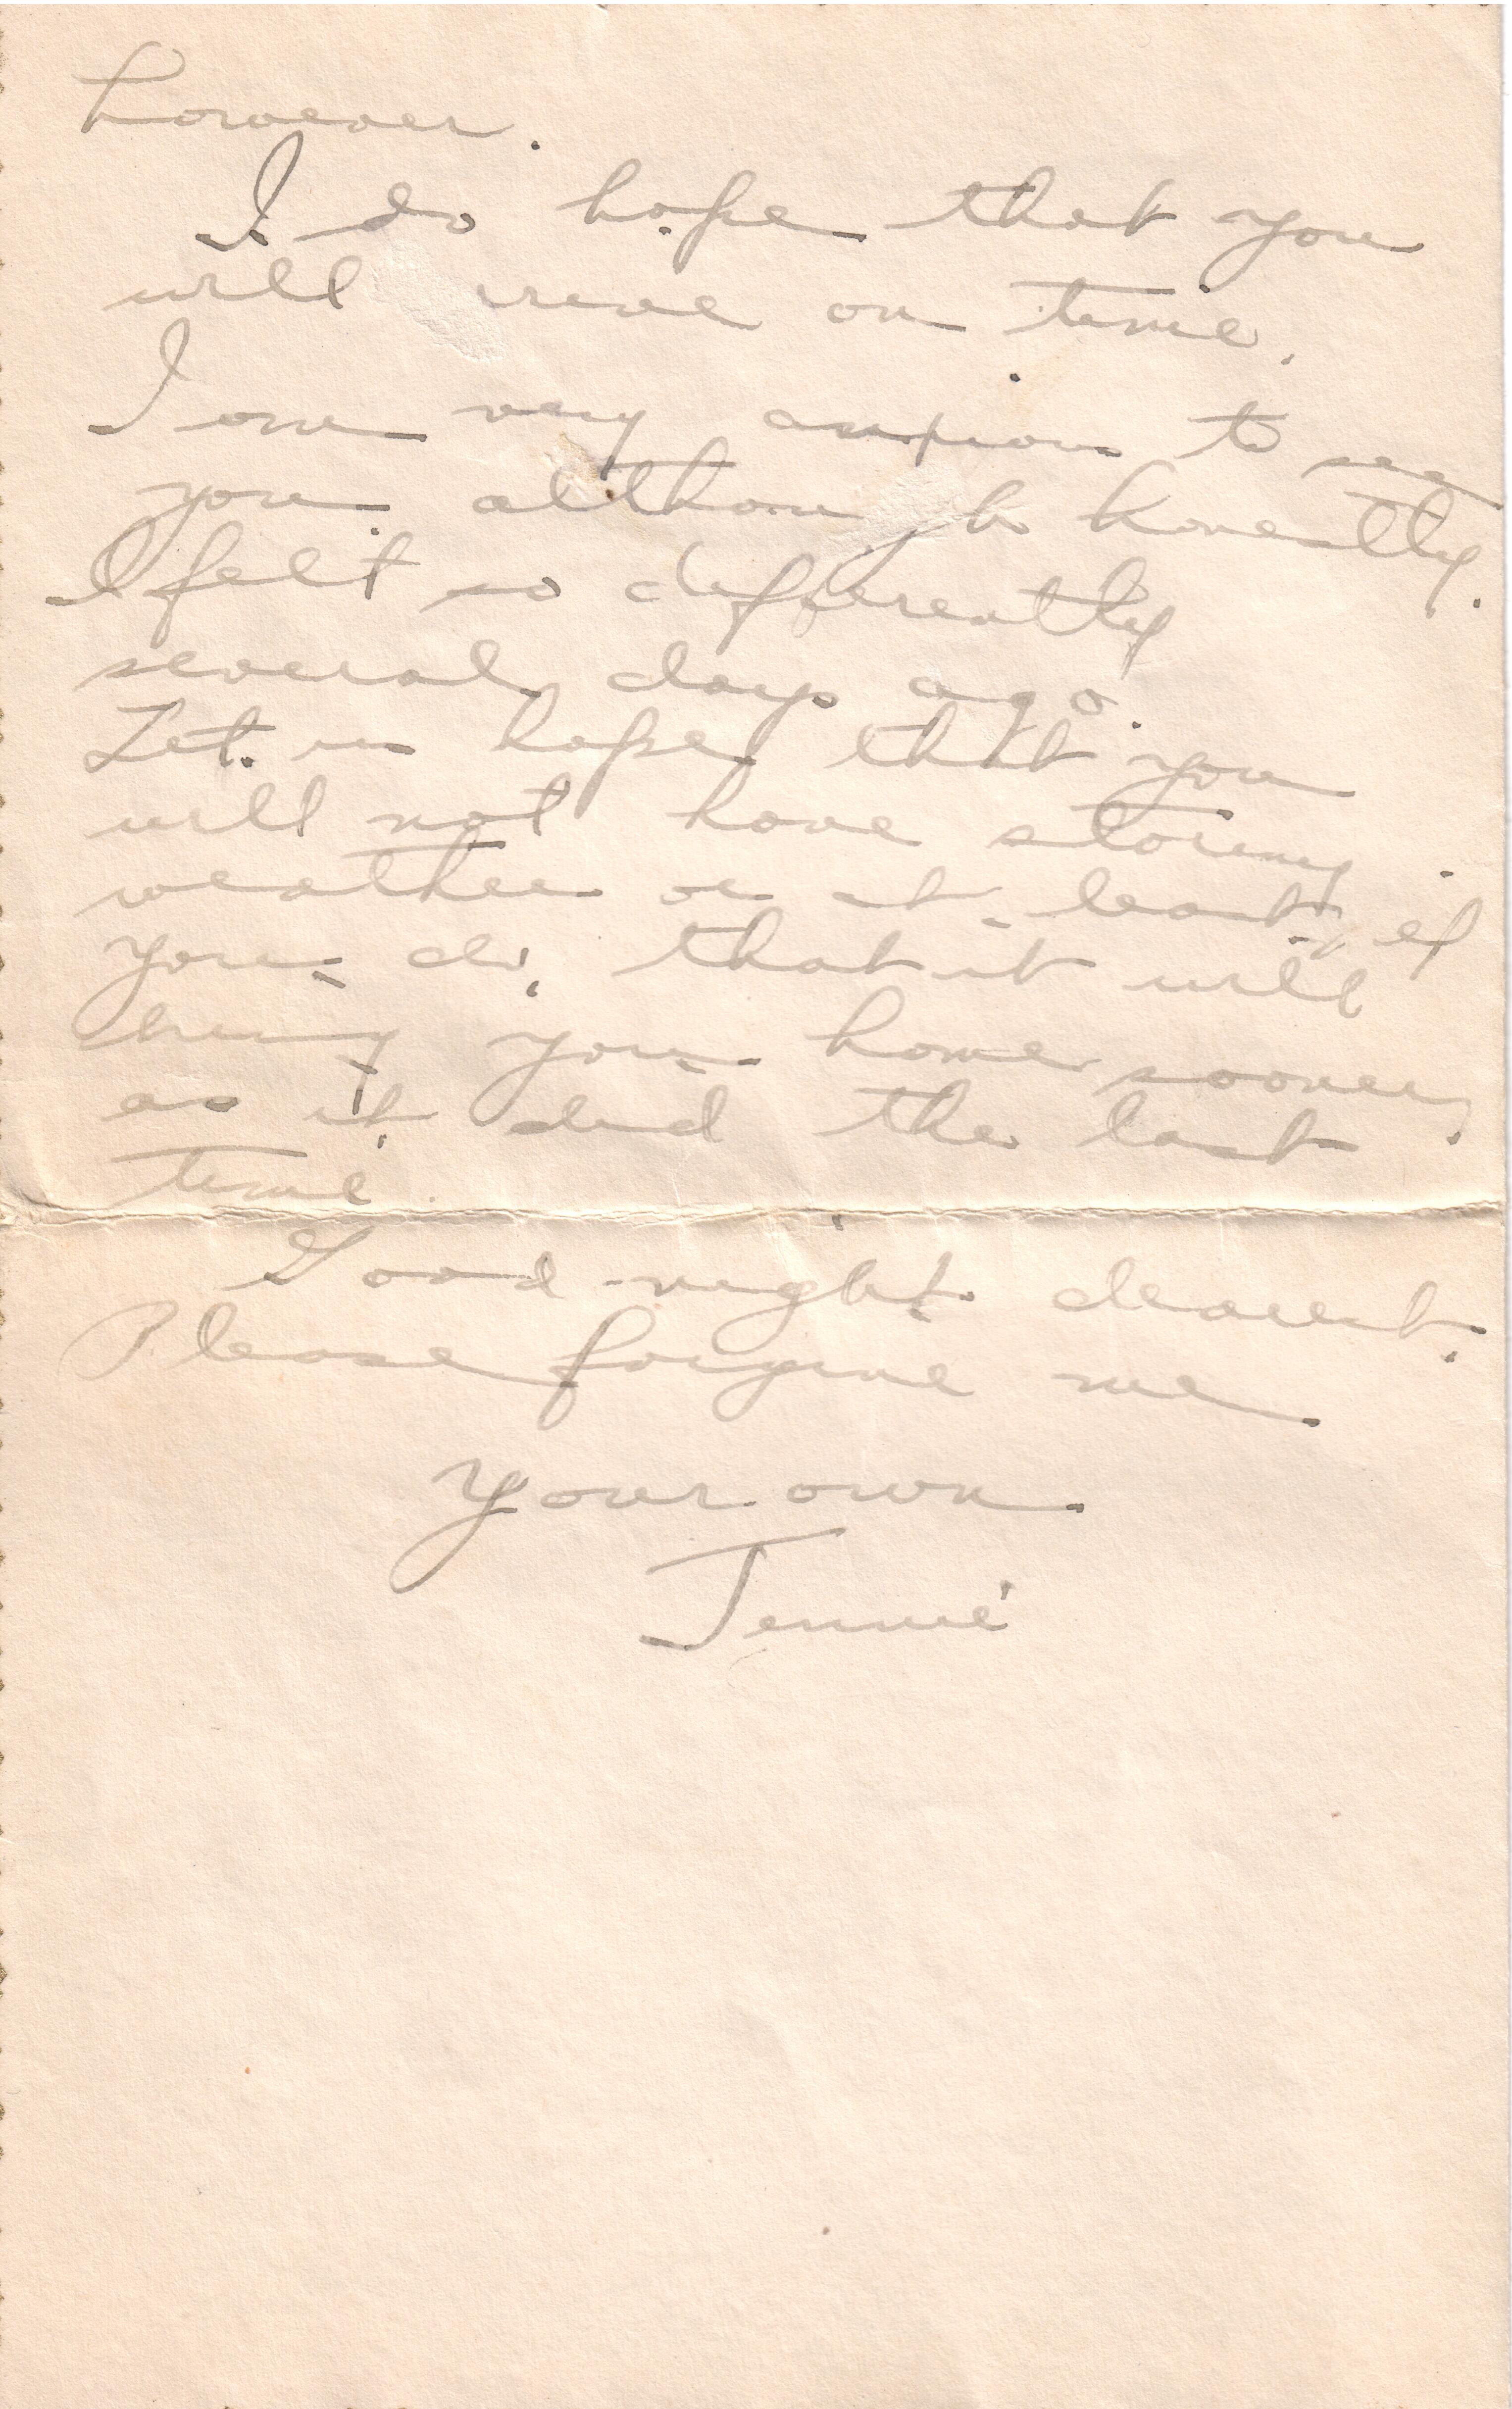 however.
I do hope that you
will arrive on time.
I am very anxious to see
you although honestly.
I felt so differently
several days ago.
Let us hope that you
will not have stormy
weather or at least, if
you do, that it will
bring you home sooner,
as it did the last
time.
Good-night dearest.
Please forgive me
Your own
Jennie